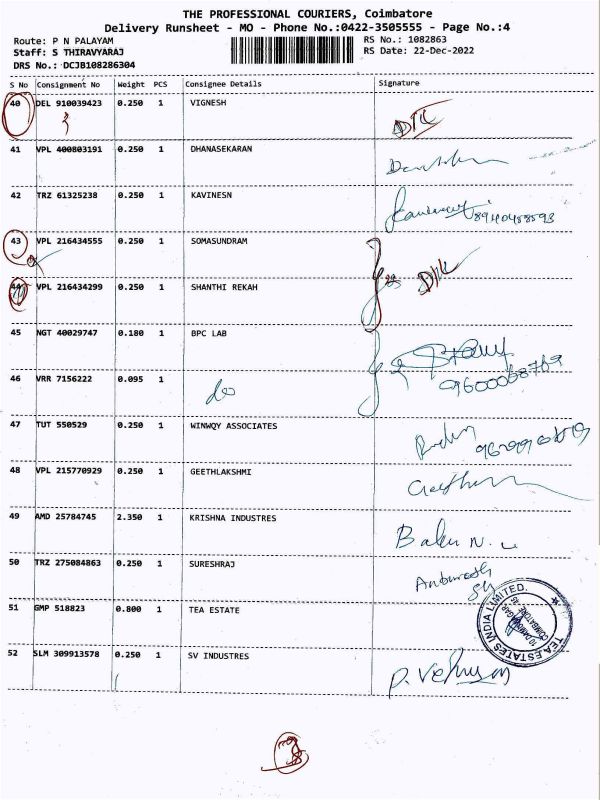 THE PROFESSIONAL COURIERS, Coimbatore
Delivery Runsheet - MO - Phone No.:0422-3505555 - Page No.:4
Route: P N PALAYAM
RS No.: 1082863
Staff: S THIRAVYARAJ
RS Date: 22-Dec-2022
DRS No.: DCJB108286304
S No Consignment No Weight PCS Consignee Details Signature
40 DEL 910039423 0.250 1 VIGNESH
41 VPL 400803191 0.250 1 DHANASEKARAN
42 TRZ 61325238 0.250 1 KAVINESN
8940488593
43 VPL 216434555 0.250 1 SOMASUNDRAM
44 VPL 216434299 0.250 1 SHANTHI REKAH
45 NGT 40029747 0.180 1 BPC LAB
9600068769
46 VRR 7156222 0.095 1 do
47 TUT 550529 0.250 1 WINWQY ASSOCIATES
48 VPL 215770929 0.250 1 GEETHLAKSHMI
49 AMD 25784745 2.350 1 KRISHNA INDUSTRES
Balu N.
50 TRZ 275084863 0.250 1 SURESHRAJ
51 GMP 518823 0.800 1 TEA ESTATE
TEA ESTATES INDIA LIMITED.
52 SLM 309913578 0.250 1 SV INDUSTRES